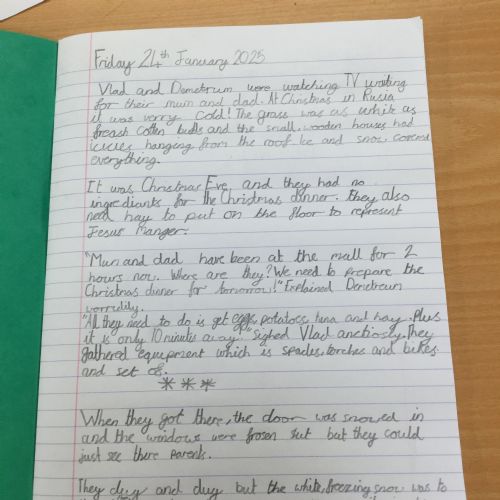 Friday 24th January 2025
Vlad and Demetrum were watching TV waiting
for their mum and dad. At Christmas in Rusia
it was verry cold! The grass was as white as
freash cotten buds and the small, wooden houses had
icicles hanging from the roof. Ice and snow covered
everything.
It was Christmas Eve and they had no
ingredients for the Christmas dinner. they also
need hay to put on the floor to represent
Jesus Manger.
"Mum and dad have been at the mall for 2
hours now. Where are they? We need to prepare the
Christmas dinner for tomorrow!" Explained Demetrum
worridly.
"All they need to do is get eggs, potatoes, tuna and hay. Plus
it is only 10 minutes away." Sighed Vlad anctiosly. They
gathered equipment which is spades, torches and bikes
and set of.
***
When they got there, the door was snowed in
and the windows were frosen sut but they could
just see there parents.
They dug and dug but the white, freezing snow was to